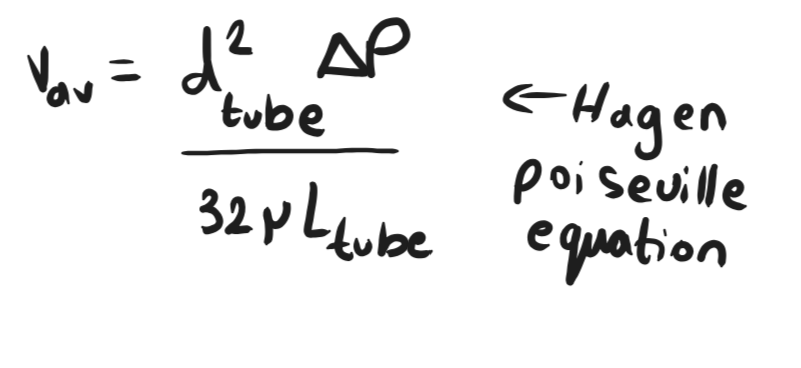 v_av = d²_tube ΔP
32 μ L_tube
← Hagen
poiseuille
equation